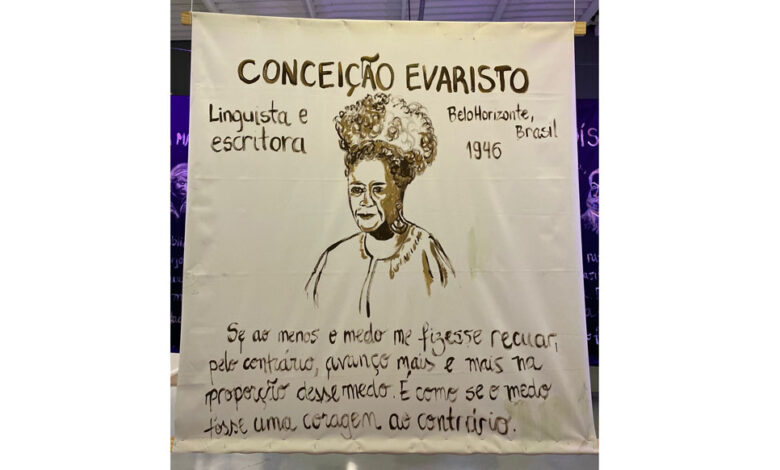 CONCEIÇÃO EVARISTO
Linguista e
escritora
Belo Horizonte,
Brasil
1946
Se ao menos o medo me fizesse recuar,
pelo contrário, avanço mais e mais na
proporção desse medo. É como se o medo
fosse uma coragem ao contrário.